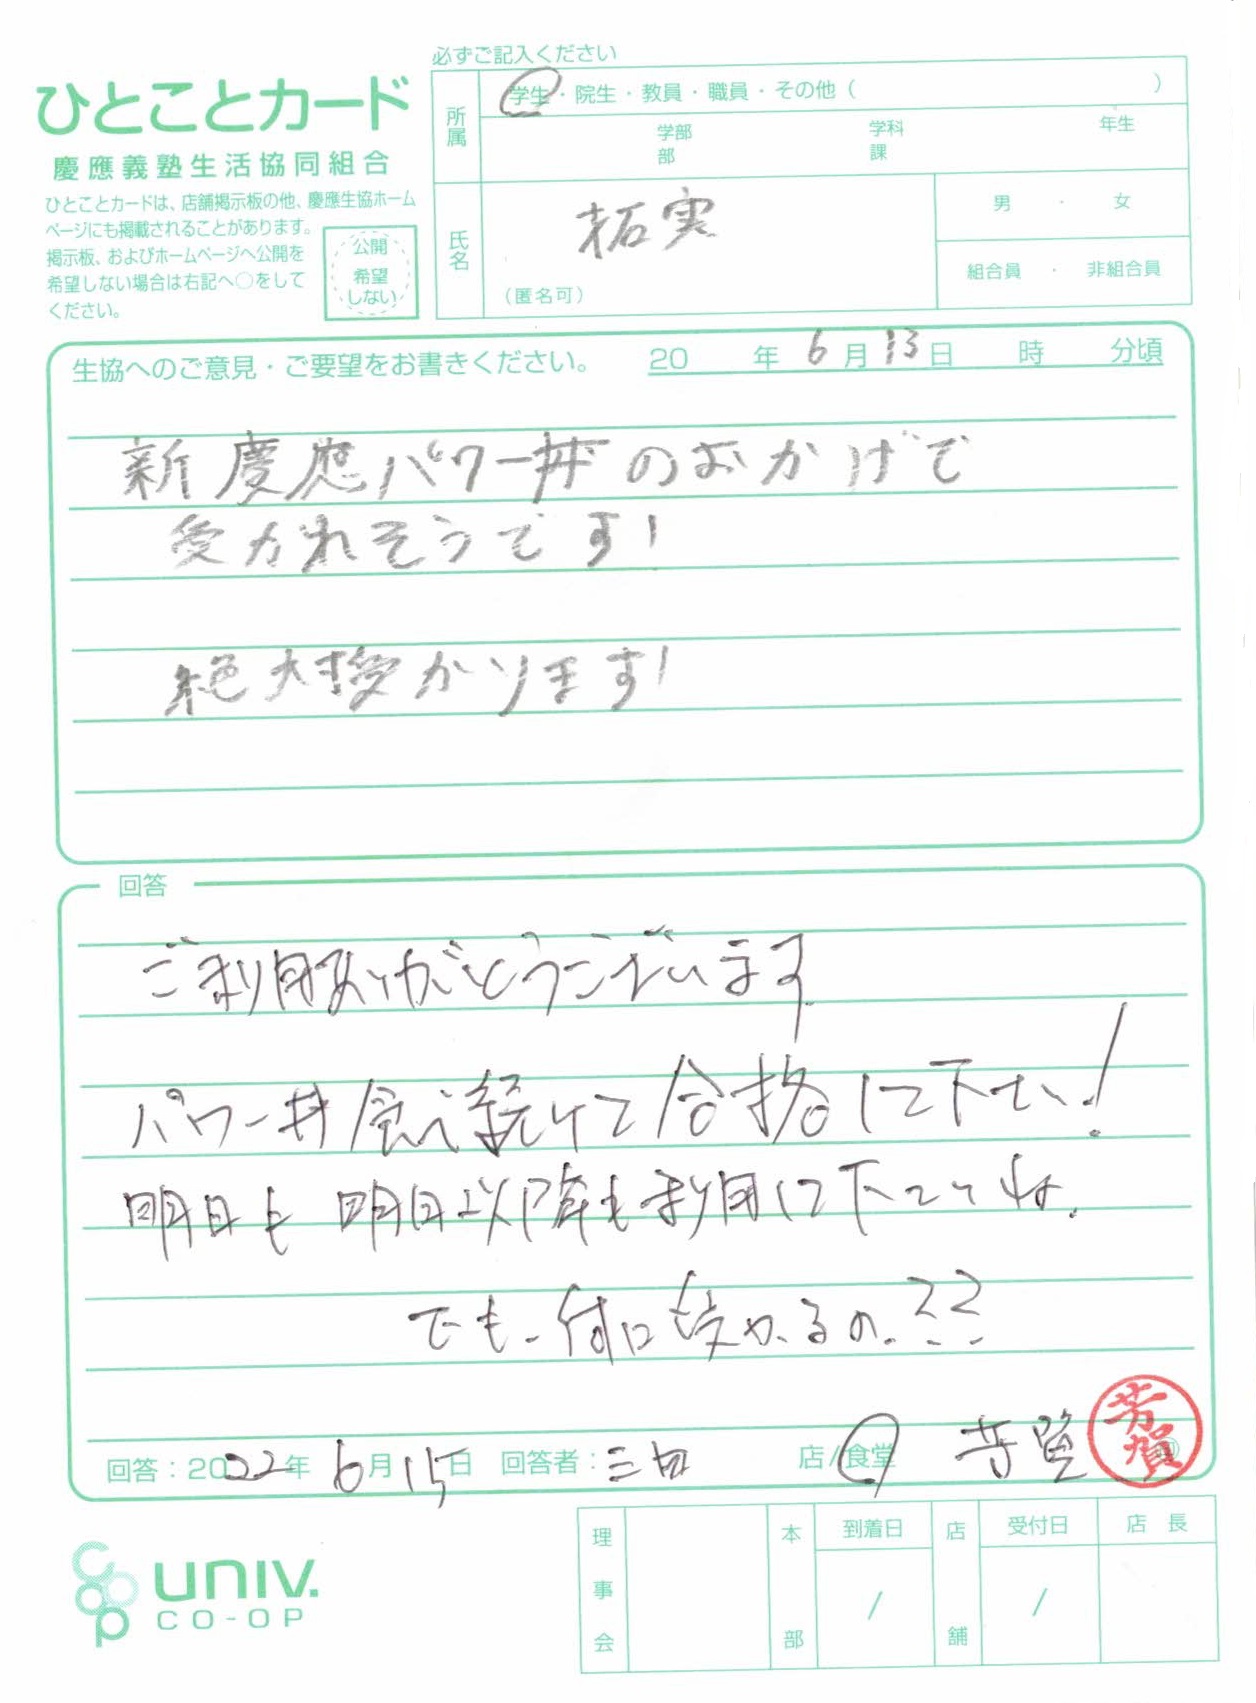 必ずご記入ください
ひとことカード
慶應義塾生活協同組合
ひとことカードは、店舗掲示板の他、慶應生協ホーム
ページにも掲載されることがあります。
掲示板、およびホームページへ公開を
希望しない場合は右記へ○をして
ください。
公開
希望
しない
所属
学生・院生・教員・職員・その他( )
学部 学科 年生
部 課
氏名
拓実
(匿名可)
男 ・ 女
組合員 ・ 非組合員
生協へのご意見・ご要望をお書きください。 20 年 6月 13日 時 分頃
新慶應パワー丼のおかげで
受かれそうです!
絶対受かります!
回答
ご利用ありがとうございます
パワー丼食べ続けて合格して下さい!
明日も明日以降も利用して下さいね。
でも、何に受かるの??
回答:2022年 6月15日 回答者:三田 店/食堂 芳賀
芳賀
UNIV.
CO-OP
理事会
本部
到着日
/
店舗
受付日
/
店長